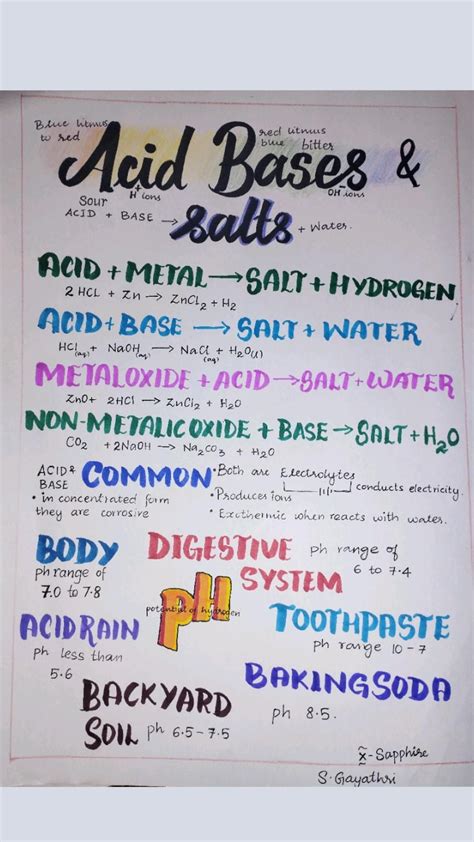 Blue litmus
to red
red litmus
blue bitter
Acid Bases &
H+ ions
OH- ions
Sour
salts
ACID + BASE → + Water.
ACID + METAL → SALT + HYDROGEN
2 HCL + Zn → ZnCl2 + H2
ACID + BASE → SALT + WATER
HCl(aq) + NaOH(aq) → NaCl(aq) + H2O(l)
METALOXIDE + ACID → SALT + WATER
ZnO + 2HCl → ZnCl2 + H2O
NON-METALIC OXIDE + BASE → SALT + H2O
CO2 + 2NaOH → Na2CO3 + H2O
ACID &
BASE
COMMON
• in concentrated form
they are corrosive
• Both are Electrolytes
conducts electricity.
• Produces ions
• Exothermic when reacts with water.
BODY
ph range of
7.0 to 7.8
DIGESTIVE
SYSTEM
ph range of
6 to 7.4
pH
potential of hydrogen
ACID RAIN
ph less than
5.6
TOOTHPASTE
ph range 10-7
BAKING SODA
ph 8.5.
BACKYARD
SOIL ph 6.5-7.5
x̃-Sapphire
S. Gayathri